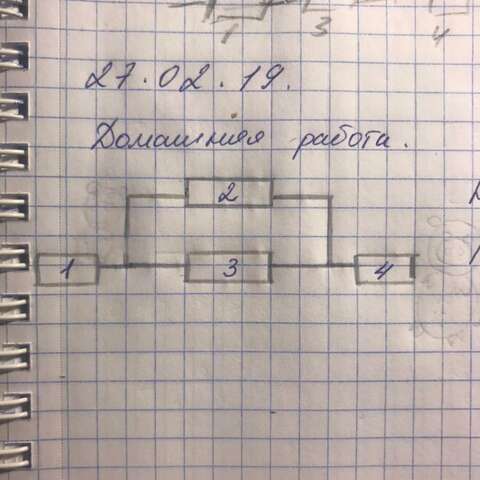 1 3 4
27.02.19.
Домашняя работа.
2
1 3 4